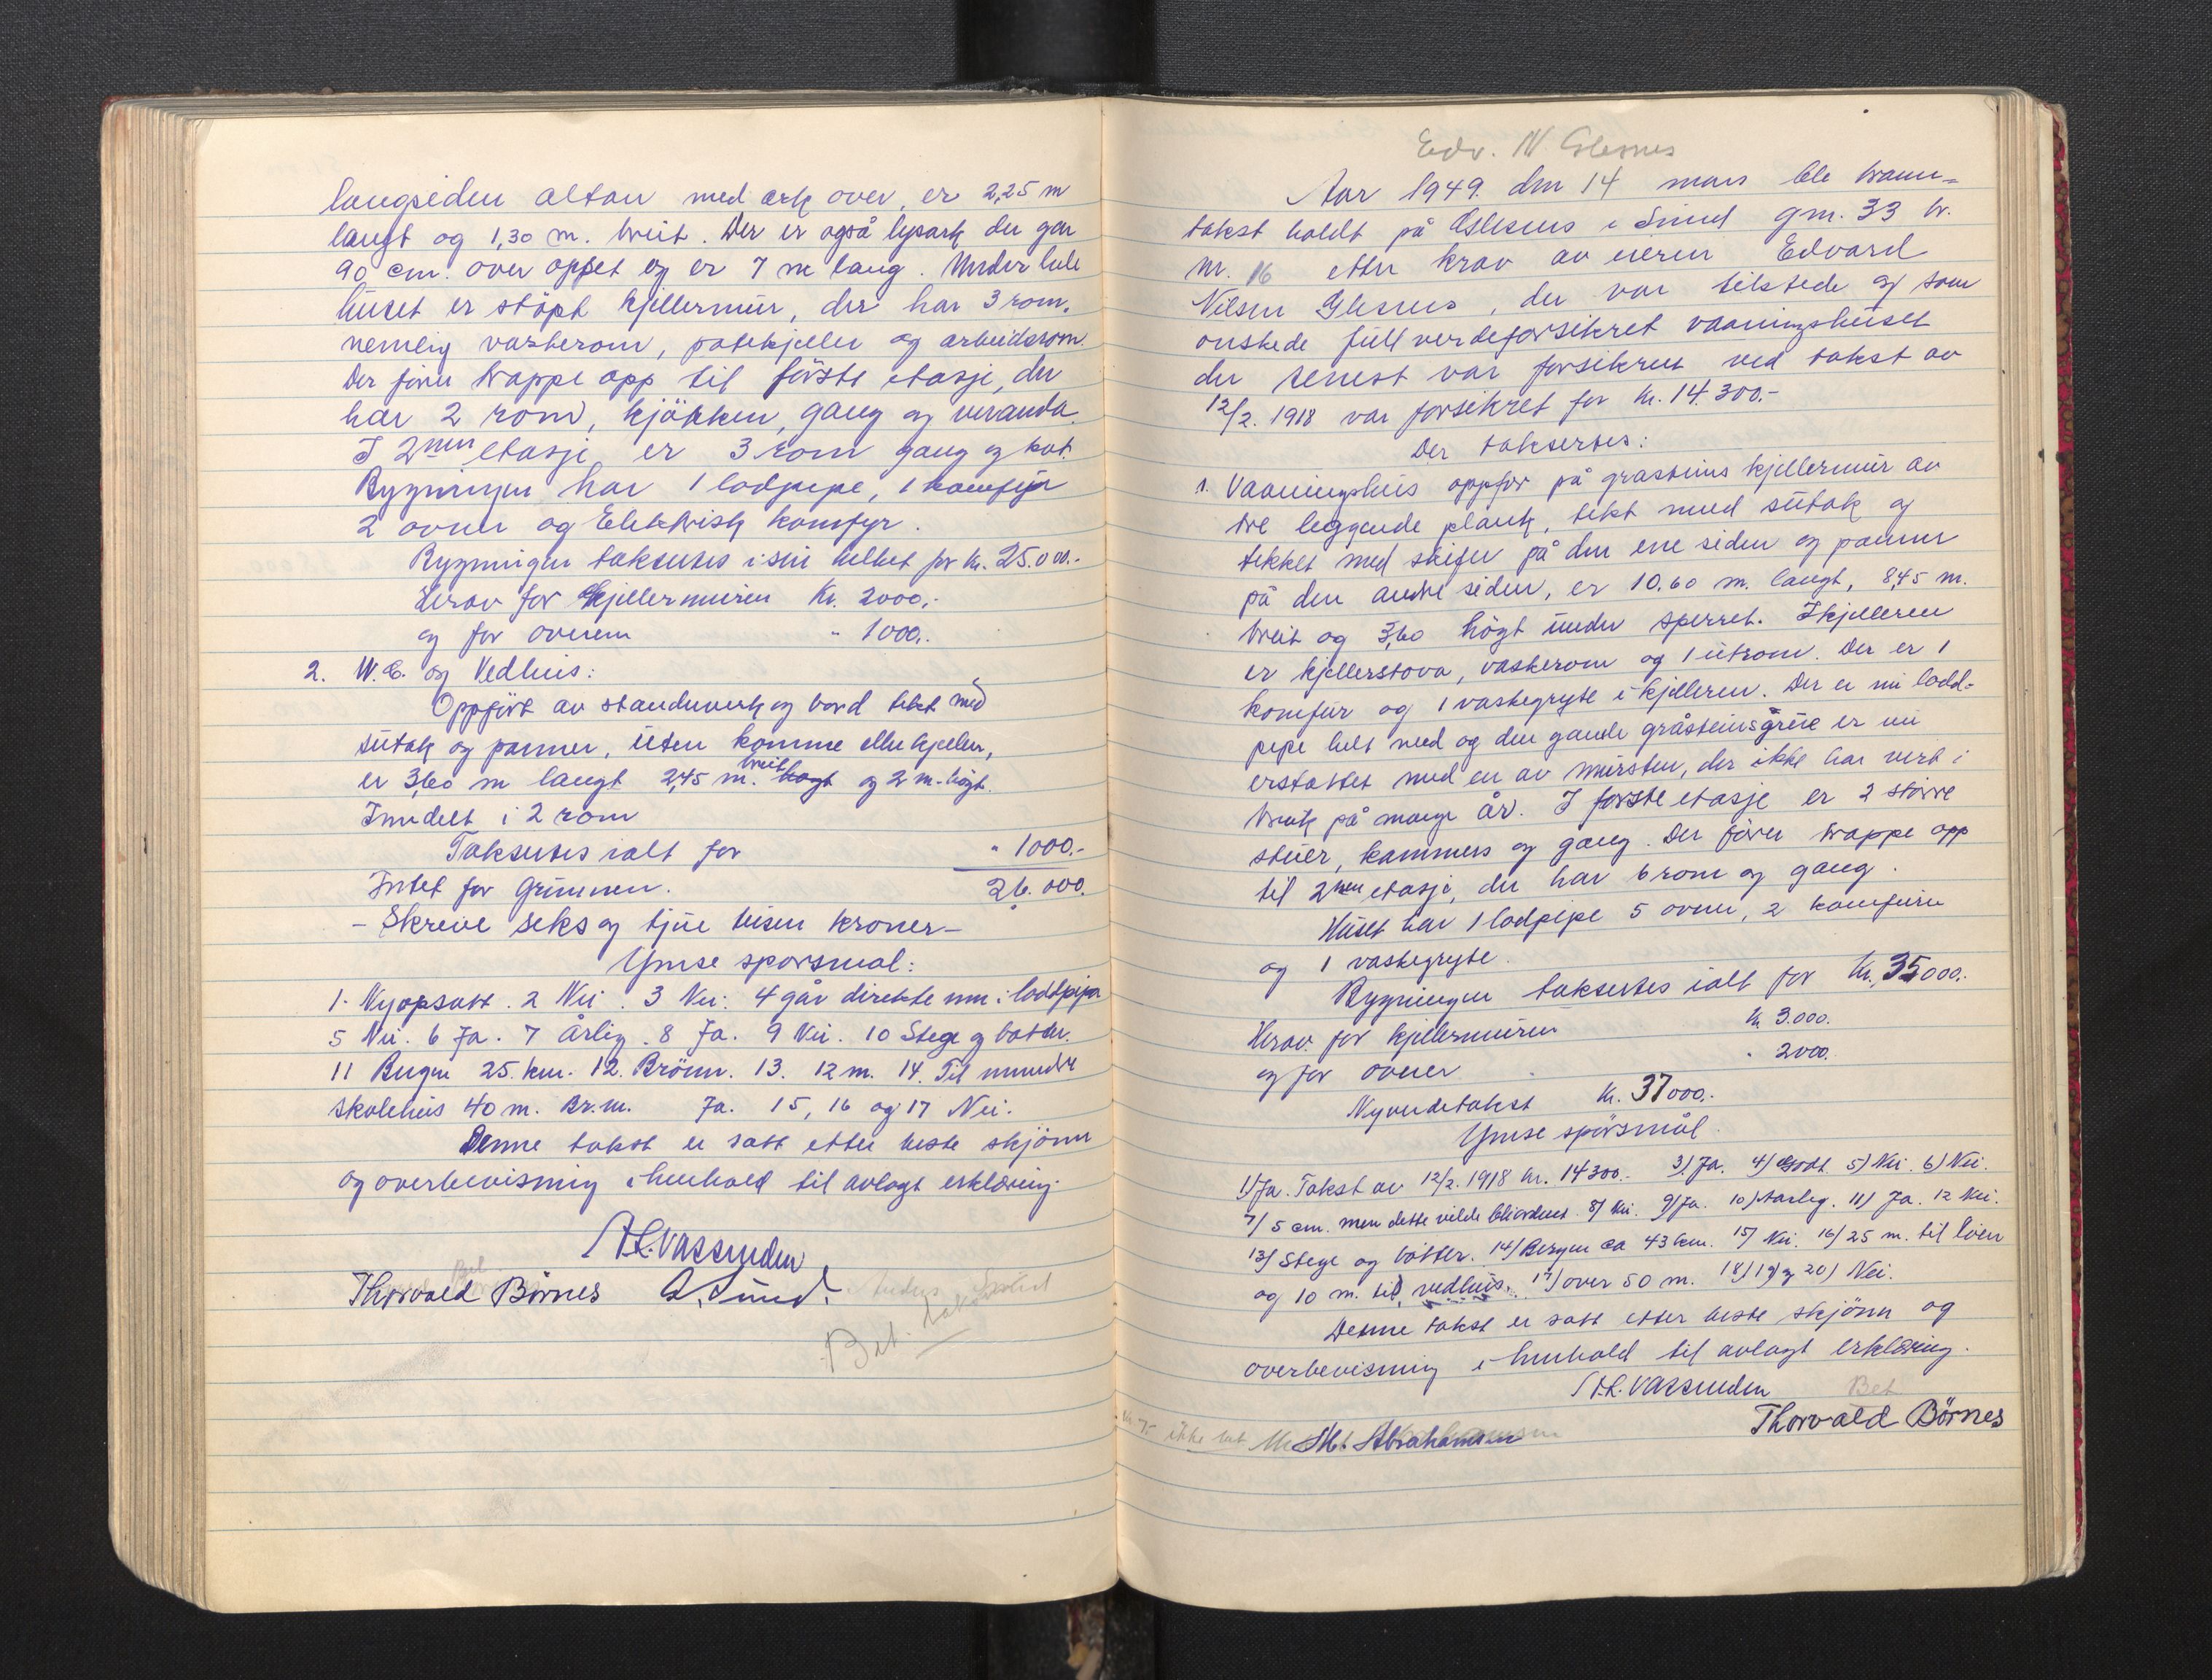 langsiden altan med ark over, er 2,25 m
langt og 1,30 m. breit. Der er også lysark der går
90 cm. over oppet og er 7 m lang. Under hele
huset er støpt kjellermur, der har 3 rom,
nemlig vaskerom, potetkjeller og arbeidsrom.
Der förer trappe opp til förste etasje, der
har 2 rom, kjökken, gang og veranda.
I 2nen etasje er 3 rom gang og kot.
Bygningen har 1 lodpipe, 1 komfyr
2 ovner og Elektrisk komfyr.
Bygningen takseres i sin helhet for kr. 25.000.-
Herav for kjellermuren Kr. 2000.-
og for ovnene " 1000.-
2. W.C. og Vedhus:
Oppfört av standverk og bord tekt med
sutak og panner, uten komme eller kjeller,
er 3,60 m langt 2,45 m. breit og 2 m. högt.
Inndelt i 2 rom
Takseres ialt for " 1000.-
Intet for Grunnen. 26.000.
- Skrive seks og tjue tusen kroner -
Ymse sporsmal:
1. Nyopsatt. 2 Nei. 3 Nei. 4 går direkte inn i lodpipa
5 Nei. 6 Ja. 7 Årlig. 8 Ja. 9 Nei. 10 Stege og bøtter.
11 Bergen 25. km. 12. Brönn. 13. 12 m. 14. Til mindre
skolehus 40 m. Br.m. Ja. 15, 16 og 17 Nei.
Denne takst er satt etter beste skjönn
og overbevisning i henhold til avlagt erklæring.
H.L. Vassenden
Bet
Thorvald Börnes A. Sund.
Bet.
Edv. N Glesnes
Aar 1949. den 14 mars ble brann-
takst holdt på Glesnes i Sund gm. 33 br.
nr. 16 etter krav av eieren Edvard
Nilsen Glesnes, der var tilstede og som
onskede full verdeforsikret vaaningshuset
der senest var forsikret ved takst av
12/2. 1918 var forsikret for kr. 14.300.-
Der takserdes:
1. Vaaningshus oppfor på grasteins kjellermur av
tre leggende plank, tekt med sutak og
tekket med skifer på den ene siden og panner
på den andre siden, er 10.60 m. langt, 8,45 m.
breit og 3,60 högt under sperret. I kjelleren
er kjellerstova, vaskerom og 1 utrom. Der er 1
komfur og 1 vaskegryte i kjelleren. Der er ni lodd-
pipe helt ned og den gamle gråsteinsgrue er nu
erstattet med en av mursten, der ikke har vert i
bruk på mange år. I forste etasje er 2 större
stuer, kammers og gang. Der förer trappe opp
til 2nen etasje, der har 6 rom og gang.
Huset har 1 lodpipe 5 ovner, 2 komfurer
og 1 vaskegryte.
Bygningen takserdes ialt for Kr. 35000.-
Herav for kjellermuren kr 3.000.
og for ovner " 2000.
Nyverdetakst kr. 37000.-
Ymse spörsmål.
1) Ja. Takst av 12/2. 1918 kr. 14300.- 3) Ja. 4) Godt 5) Nei. 6) Nei.
7/ 5 cm. men dette vilde bli ordnet. 8) Nei. 9) Ja. 10) Aarleg. 11) Ja. 12 Nei.
13) Stege og bötter. 14) Bergen ca 43 km. 15) Nei. 16/ 25 m. til löen
og 10 m. til vedhus. 17) over 50 m. 18) 19) og 20) Nei.
Denne takst er satt etter beste skjönn og
overbevisning i henhold til avlagt erklæring.
H.L. Vassenden Bet
Thorvald Börnes
ikke bet M. Abrahamsen